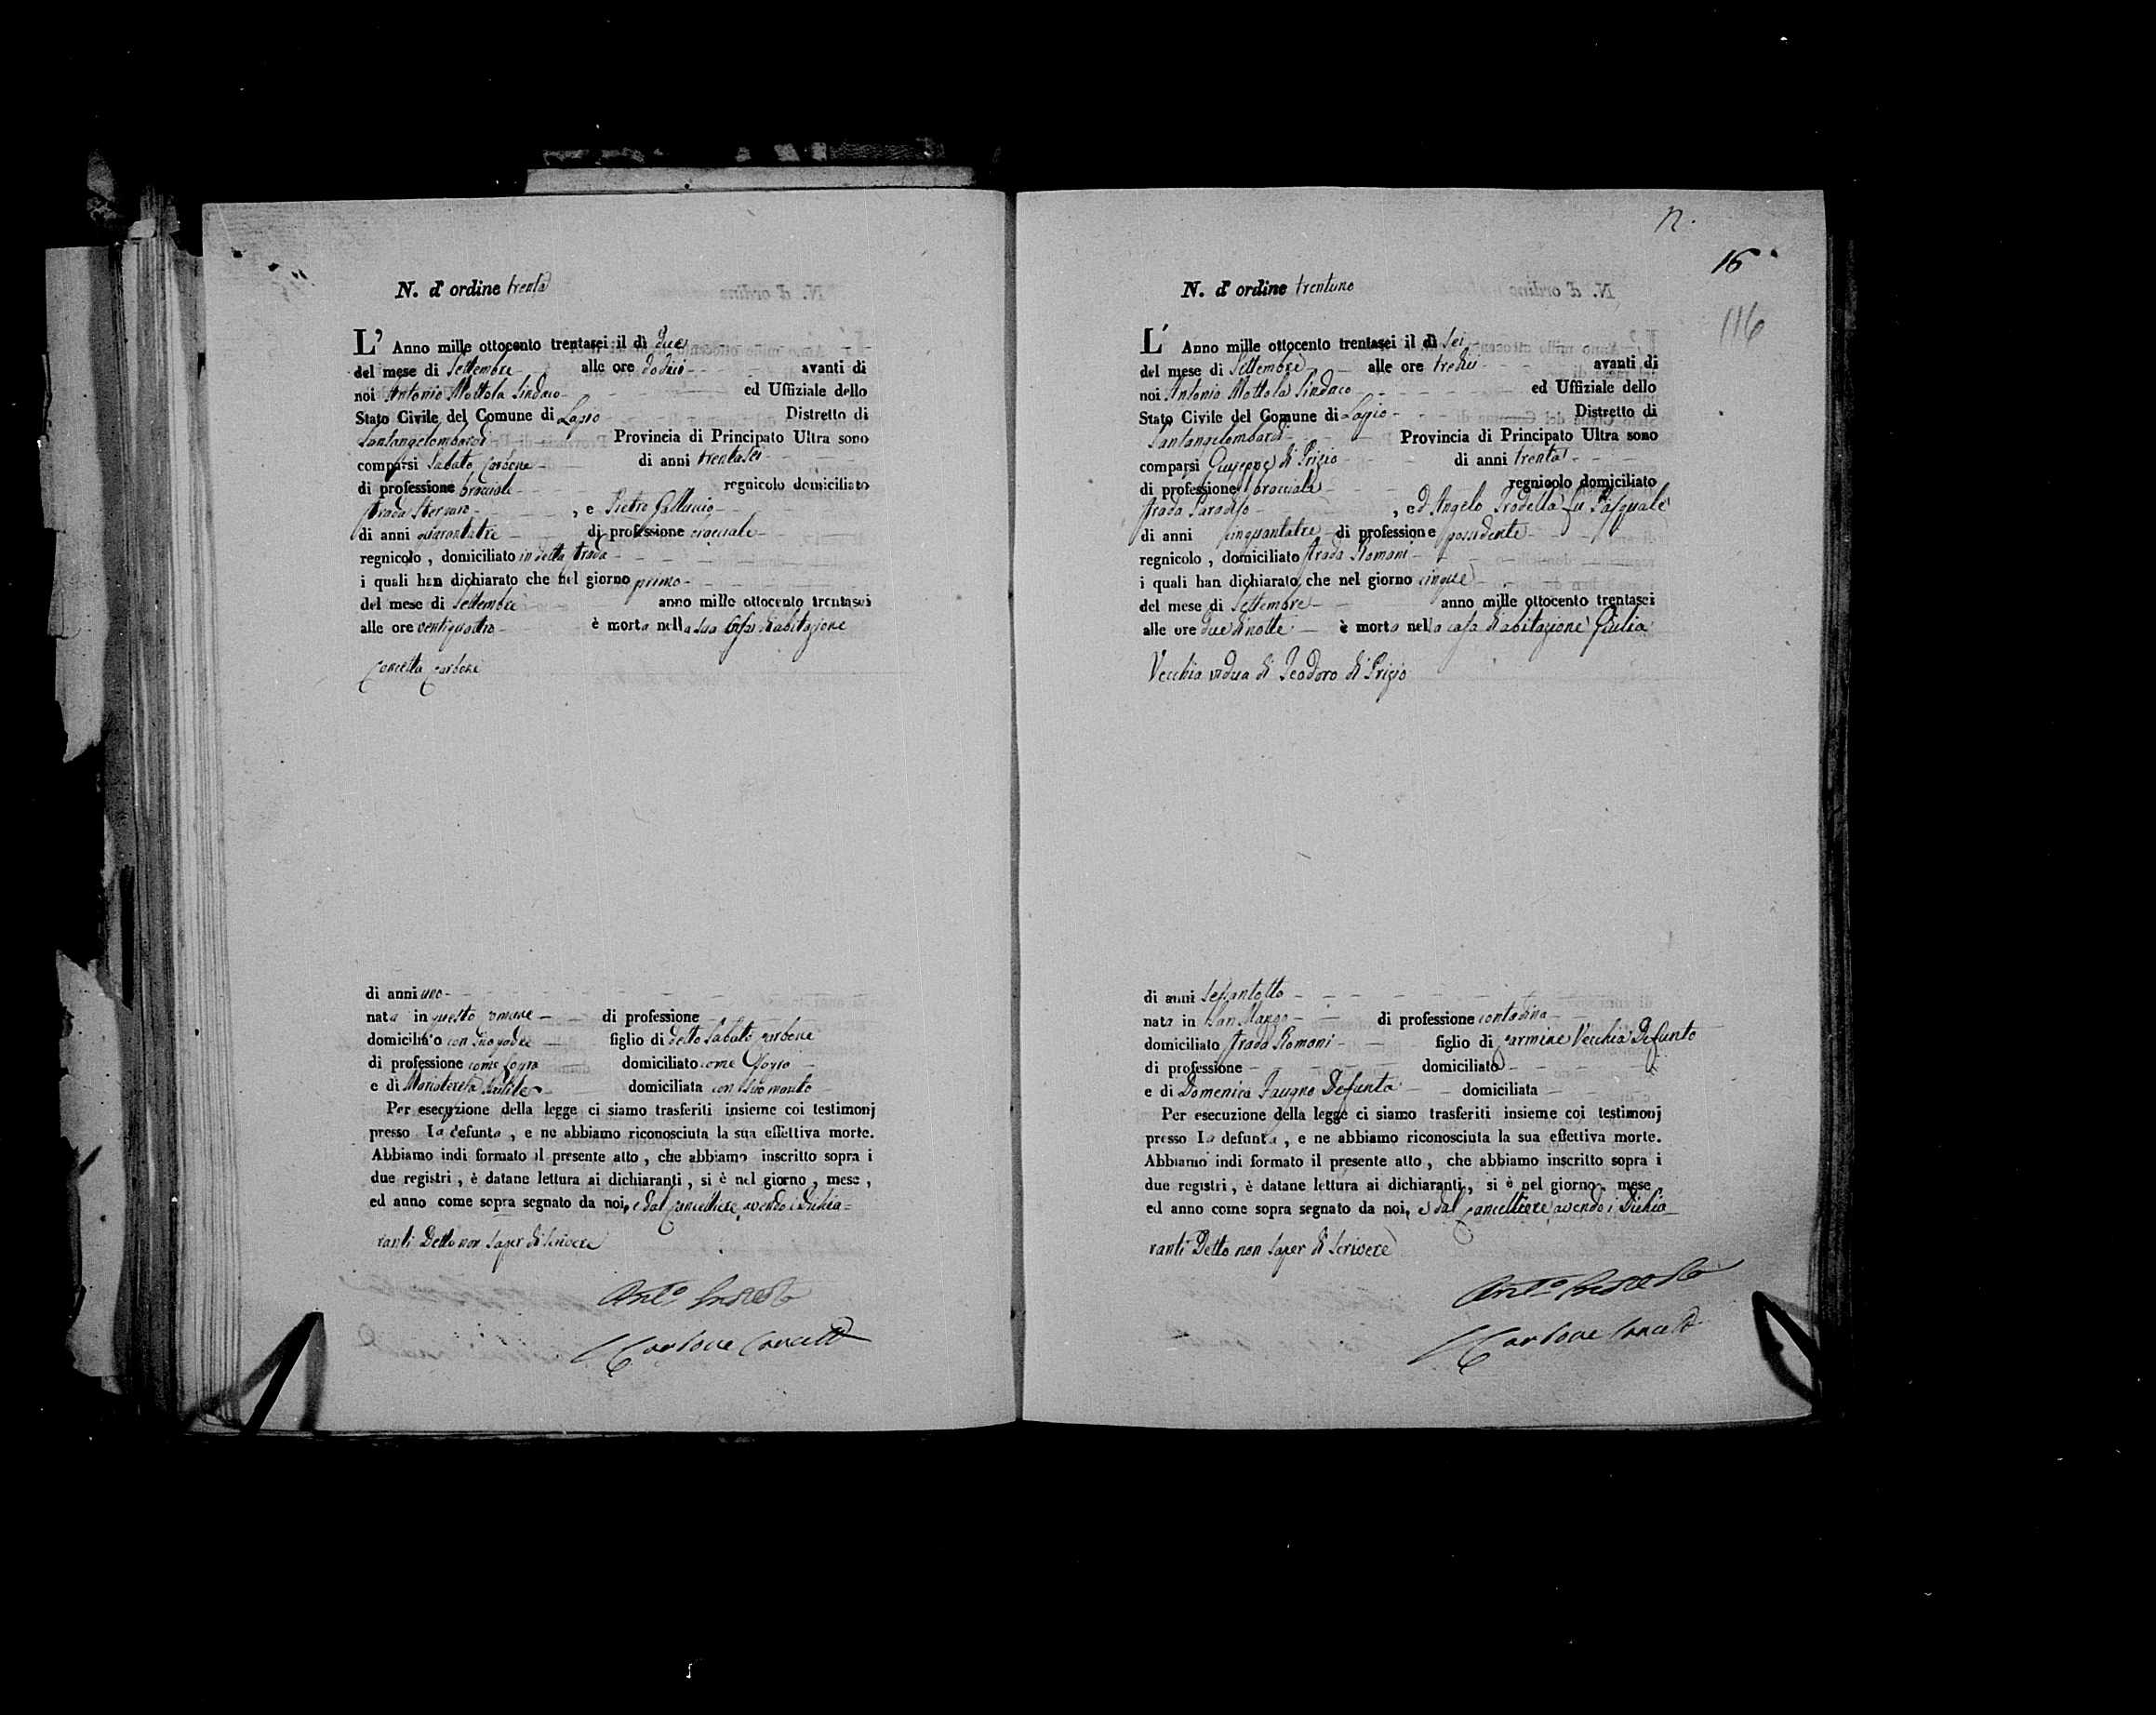 N. d'ordine trenta
L' Anno mille ottocento trentasei il dì due
del mese di Settembre alle ore dodici avanti di
noi Antonio Mottola Sindaco ed Uffiziale dello
Stato Civile del Comune di Lapio Distretto di
Santangelombardi Provincia di Principato Ultra sono
comparsi Sabato Carbone di anni trentasei
di professione bracciale regnicolo domiciliato
strada , e Pietro Galluccio
di anni quarantatre di professione bracciale
regnicolo , domiciliato in detta strada
i quali han dichiarato che nel giorno primo
del mese di Settembre anno mille ottocento trentasei
alle ore ventiquattro è morta nella sua casa di abitazione
Concetta Carbone
di anni uno
nata in questo comune di professione
domiciliato con suo padre figlio di detto Sabato Carbone
di professione come sopra domiciliato come sopra
e di Mariateresa domiciliata con suo marito
Per esecuzione della legge ci siamo trasferiti insieme coi testimonj
presso la defunta , e ne abbiamo riconosciuta la sua effettiva morte.
Abbiamo indi formato il presente atto , che abbiamo inscritto sopra i
due registri , è datane lettura ai dichiaranti , si è nel giorno , mese ,
ed anno come sopra segnato da noi, e dal cancelliere, avendo i dichia=
ranti detto non saper di scrivere
Ant.o
Carbone Cancell
12.
16
116
N. d'ordine trentuno
L' Anno mille ottocento trentasei il dì sei
del mese di Settembre alle ore tredici avanti di
noi Antonio Mottola Sindaco ed Uffiziale dello
Stato Civile del Comune di Lapio Distretto di
Santangelombardi Provincia di Principato Ultra sono
comparsi Giuseppe di Prizio di anni trenta
di professione bracciale regnicolo domiciliato
strada Paradiso , ed Angelo Prodella fu Pasquale
di anni cinquantatre di professione possidente
regnicolo , domiciliato strada Romani
i quali han dichiarato, che nel giorno cinque
del mese di Settembre anno mille ottocento trentasei
alle ore due di notte è morta nella casa di abitazione Giulia
Vecchia vedua di Teodoro di Prizio
di anni sessantotto
nata in San Mango di professione contadina
domiciliato strada Romani figlio di Carmine Vecchia Defunto
di professione domiciliato
e di Domenica Faugno Defunta domiciliata
Per esecuzione della legge ci siamo trasferiti insieme coi testimonj
presso la defunta , e ne abbiamo riconosciuta la sua effettiva morte.
Abbiamo indi formato il presente atto , che abbiamo inscritto sopra i
due registri , è datane lettura ai dichiaranti , si è nel giorno , mese
ed anno come sopra segnato da noi, e dal cancelliere, avendo i dichia
ranti detto non saper di scrivere
Ant.o
Carbone Cancell